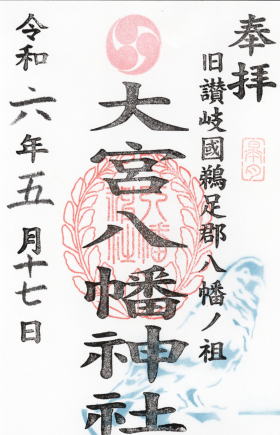 奉拝
旧讃岐國鵜足郡八幡ノ祖
大宮八幡神社
令和六年五月十七日